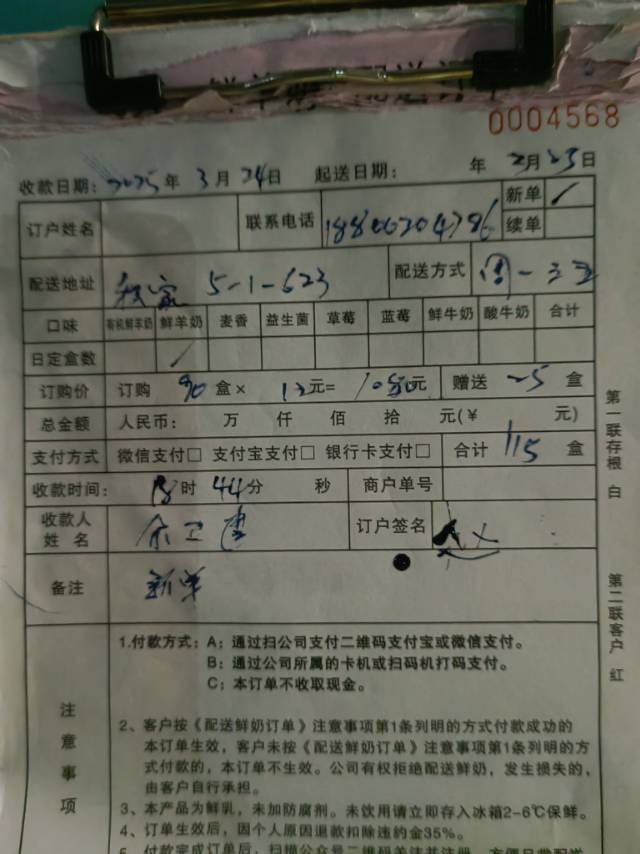 0004568
收款日期：2025年 3月 24日 起送日期： 年 3月25日
订户姓名 联系电话 新单 ✓
续单
配送地址 5-1-623 配送方式 周一三五
口味 有机鲜羊奶 鲜羊奶 麦香 益生菌 草莓 蓝莓 鲜牛奶 酸牛奶 合计
日定盒数 ✓
订购价 订购 90 盒× 12元= 1080元 赠送 25 盒
总金额 人民币： 万 仟 佰 拾 元(￥ 元)
支付方式 微信支付□ 支付宝支付□ 银行卡支付□ 合计 115 盒
收款时间： 18时 44分 秒 商户单号
收款人
姓 名 订户签名
备注 新单
注意事项
1.付款方式：A；通过扫公司支付二维码支付宝或微信支付。
B；通过公司所属的卡机或扫码机打码支付。
C；本订单不收取现金。
2、客户按《配送鲜奶订单》注意事项第1条列明的方式付款成功的
本订单生效，客户未按《配送鲜奶订单》注意事项第1条列明的方
式付款的，本订单不生效。公司有权拒绝配送鲜奶，发生损失的，
由客户自行承担。
3、本产品为鲜乳，未加防腐剂。未饮用请立即存入冰箱2-6℃保鲜。
4、订单生效后，因个人原因退款扣除违约金35%。
第一联存根 白
第二联客户 红